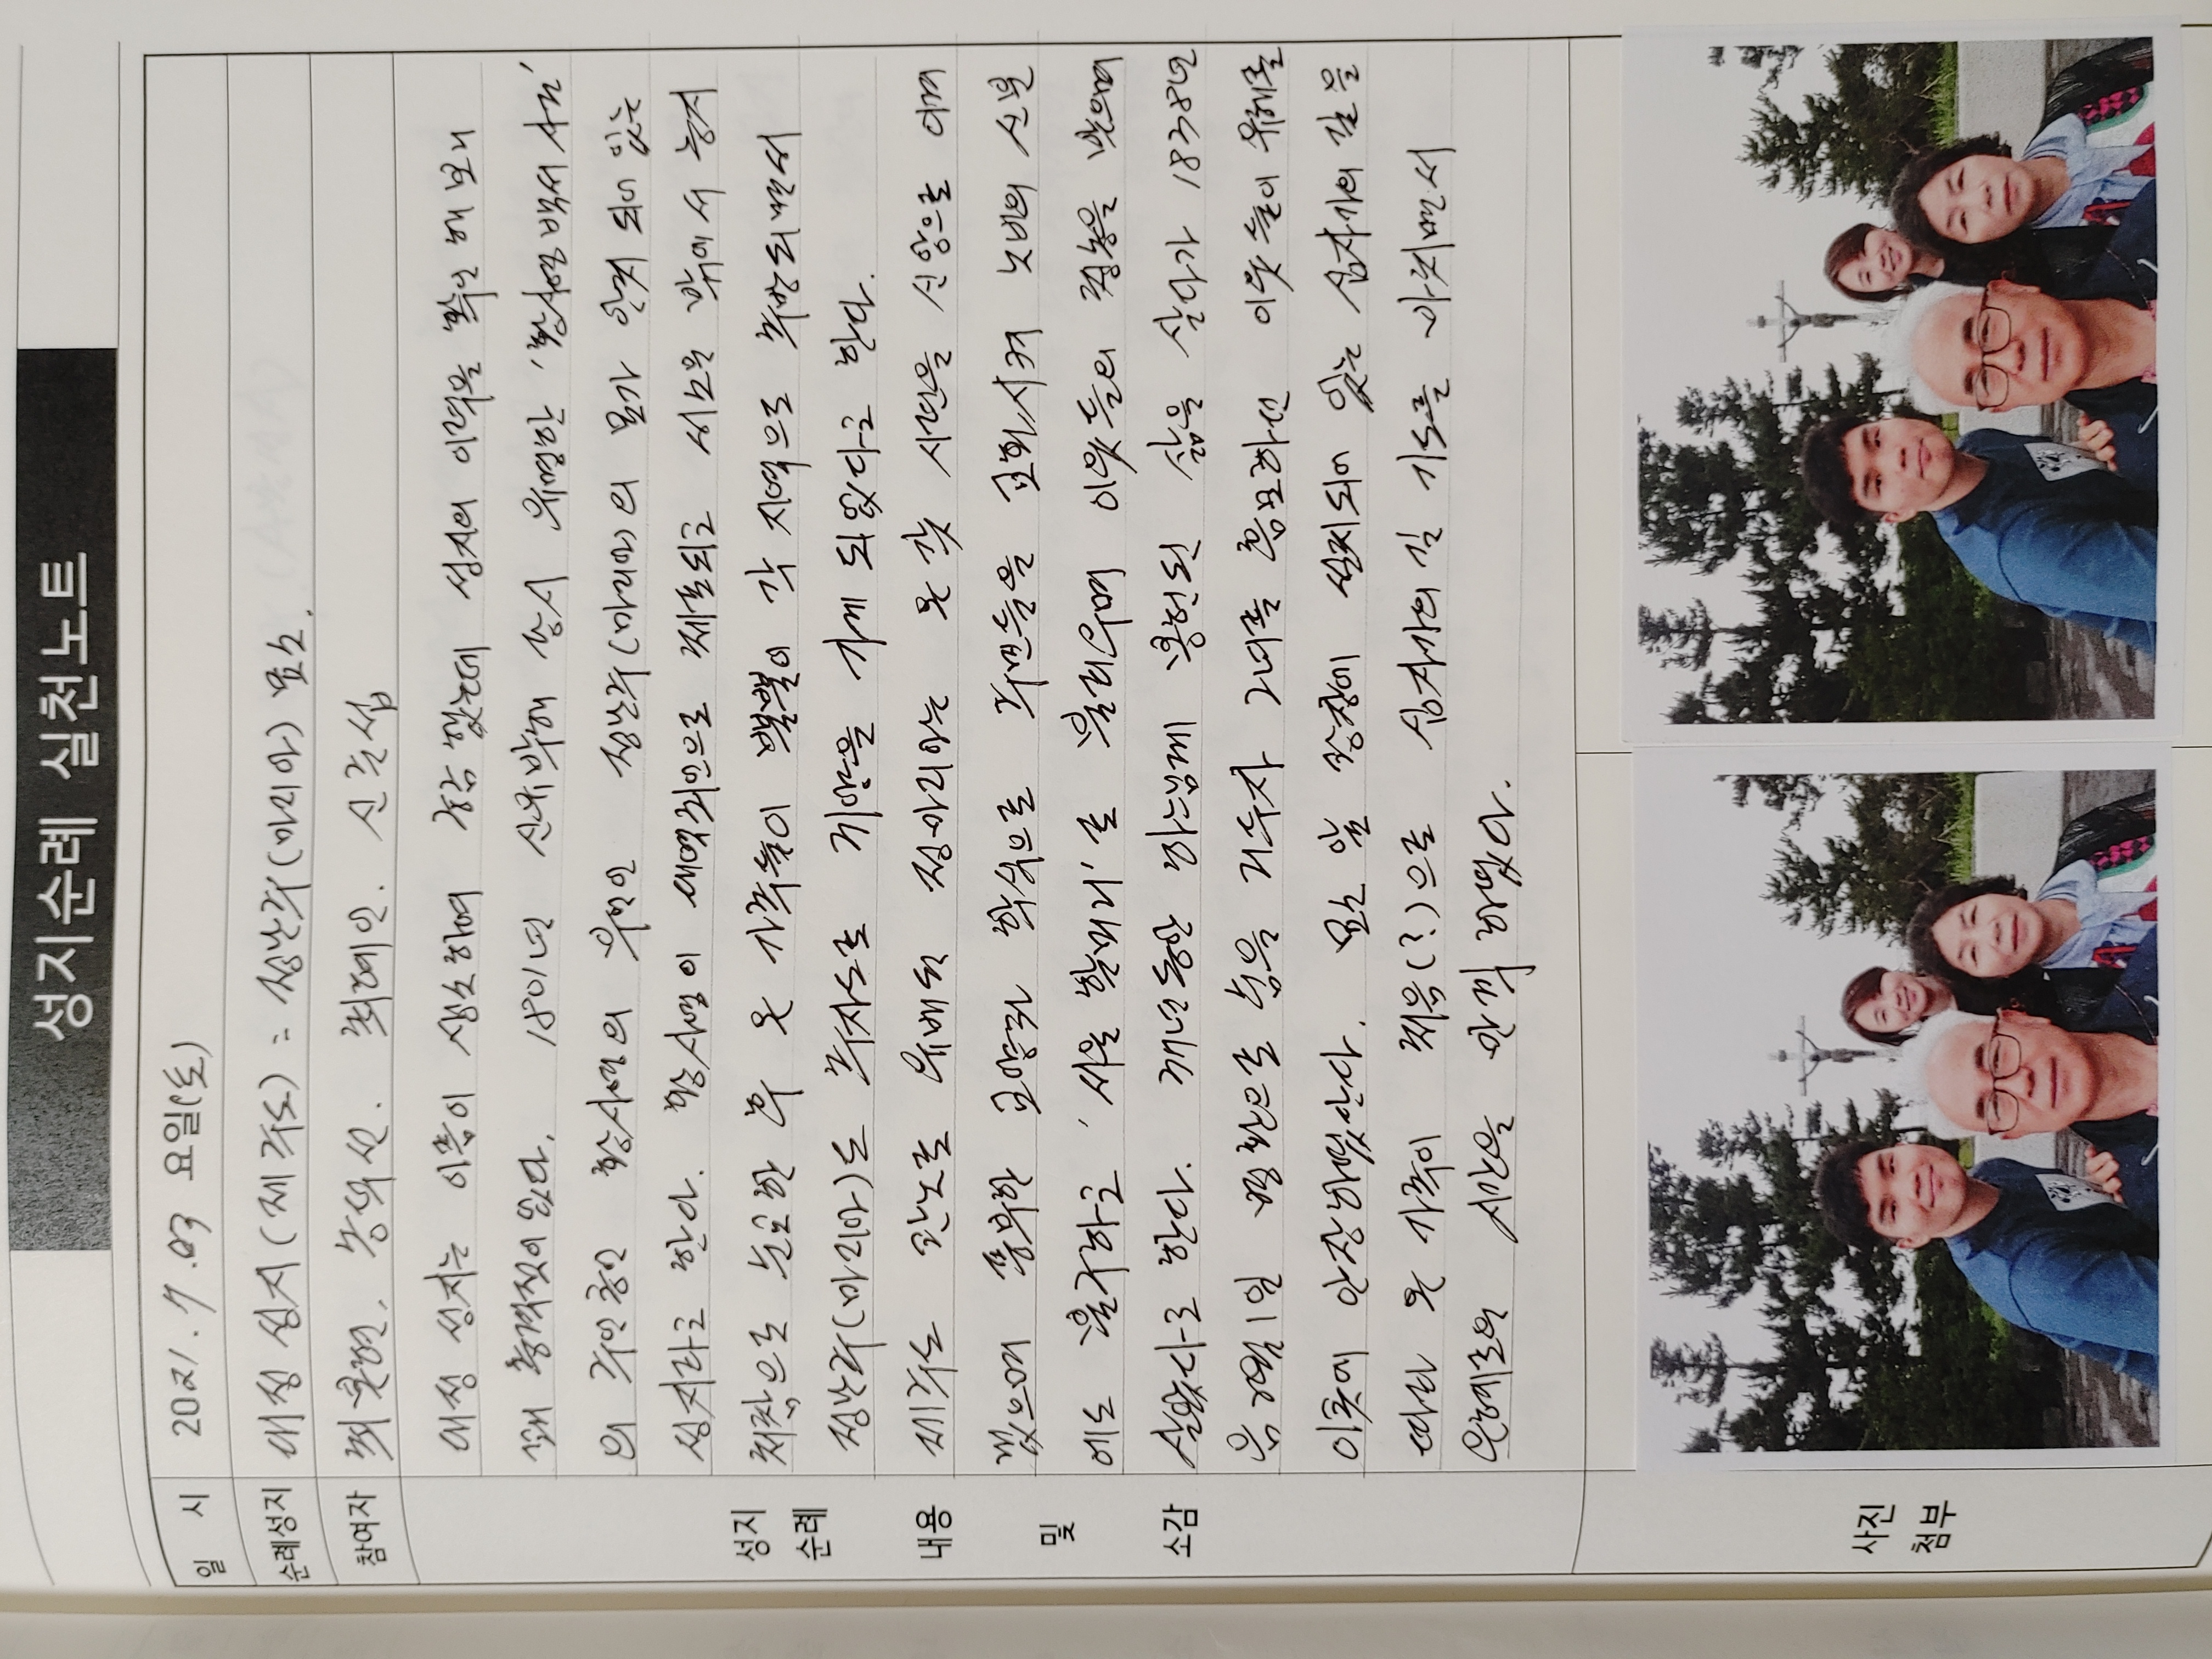 성지순례 실천노트
일 시 2021. 7. 03 요일(토)
순례성지 대정 성지(제주도) = 정난주(마리아) 묘소.
참여자 최혜인. 신준섭
대정 성지는 이름이 생소하여 궁금했는데 성지의 이력을 확인 해 보니
꽤 충격적이었다. 1801년 신유박해 당시 유명한 '황사영 백서 사건'
의 주인공인 황사영의 부인인 정난주(마리아)의 묘가 안치 되어 있는
성지라고 한다. 황사영이 대역죄인으로 체포되고 서소문 밖에서 능지
처참으로 순교한 후 온 가족들이 뿔뿔이 각 지역으로 추방되면서
정난주(마리아)도 추자도로 귀양을 가게 되었다고 한다.
제주도 관노로 유배된 정마리아는 온갖 시련을 신앙으로 이겨
냈으며 풍부한 교양과 학식으로 주민들을 교화시켜 노비의 신분
에도 불구하고 '서울 할머니'로 불리우며 이웃들의 칭송을 받으며
살았다고 한다. 37년동안 하느님께 봉헌된 삶을 살다가 1838년
음 2월 1일 병환으로 숨을 거두자 그녀를 흠모하던 이웃들이 유해를
이곳에 안장하였단다. 묘소 앞 광장에 설치되어 있는 십자가의 길을
따라 온 가족이 처음(?)으로 십자가의 길 기도를 바치면서
은혜로운 시간을 만끽 하였다.
성지
순례
내용
및
소감
사진
첨부